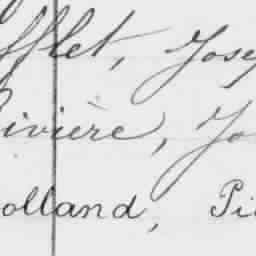 fflet, Jose
ivière, Jo
olland, Pi